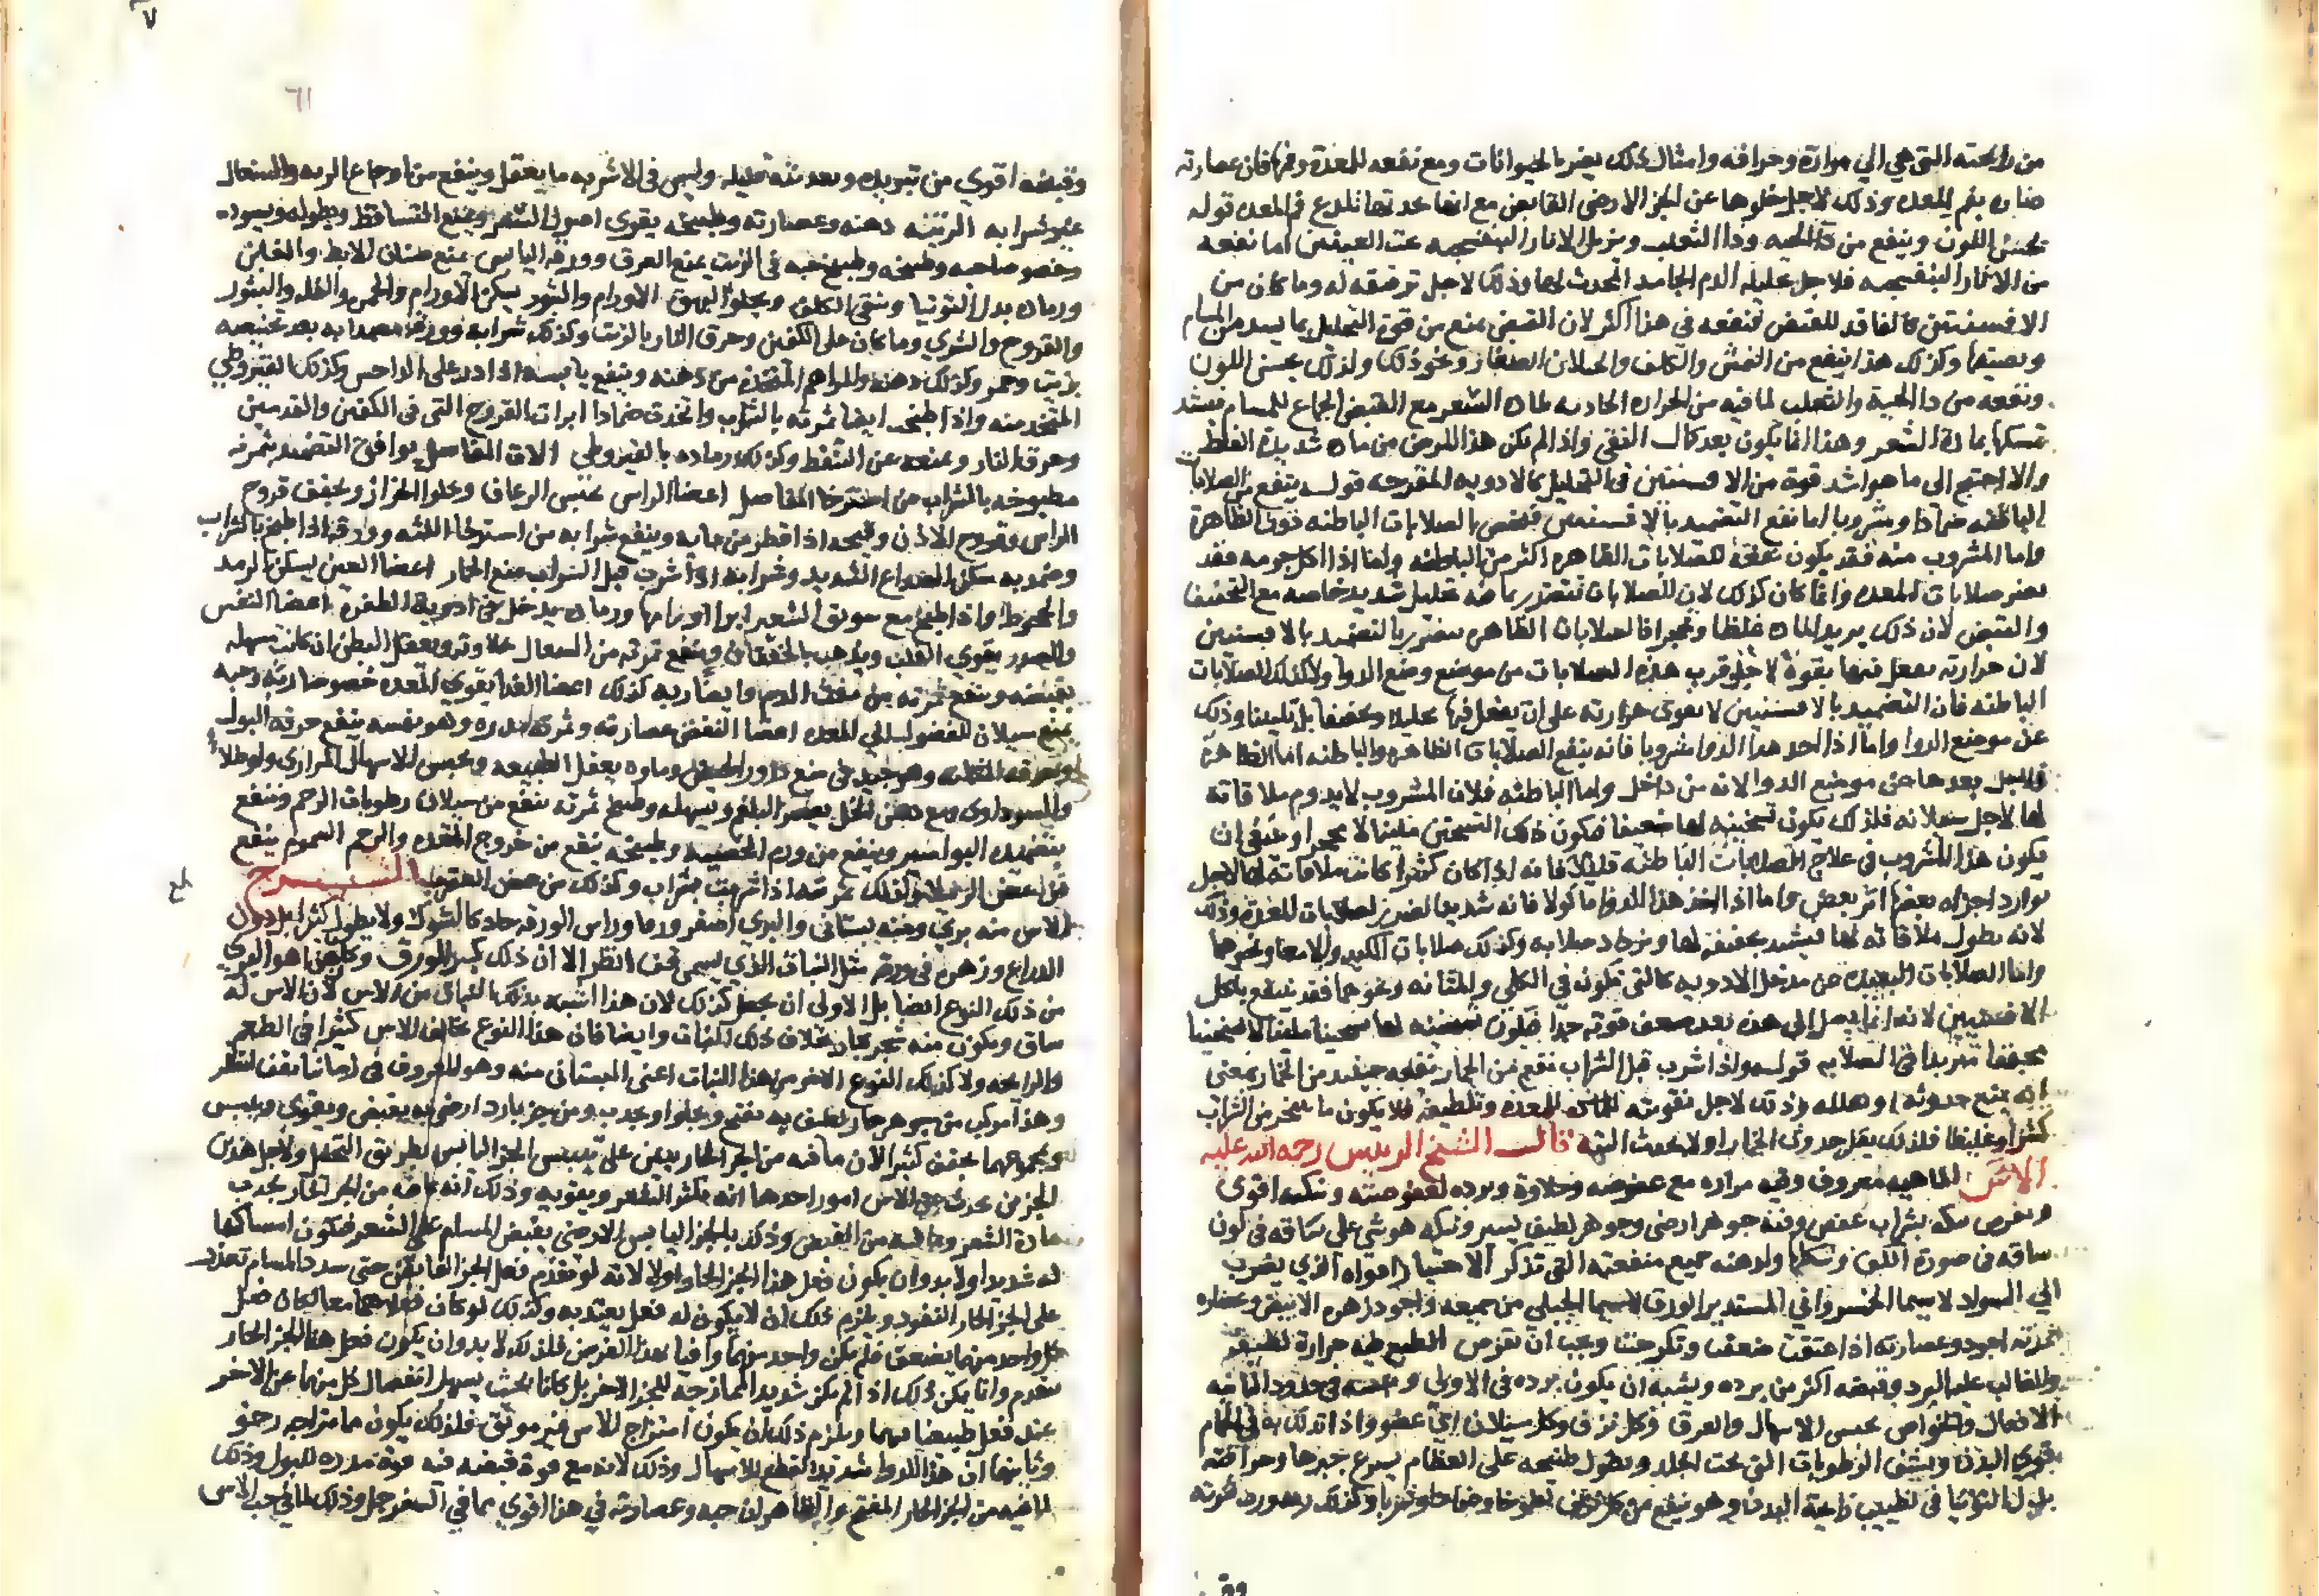 من رائحته التي هي الي مرارة وحرافه وامثال ذلك يضر بالحيوانات ومع نفعه للمعدة وفمها فان عصارته
ضاره بفم المعده وذلك لاجل خلوها عن الجز الارضي القابض مع انها حدتها تلذع فم المعده قوله
يحسن اللون وينفع من دا الحيه ودا الثعلب ويزيل الاثار البنفسجيه تحت العينين اما نفعه
من الاثار البنفسجيه فلاجل تحليله الدم الجامد المحدث لها وذلك لاجل ترقيقه له وما كان من
الافسنتين كالفاقد للقبض فنفعه في هذا اكثر لان القبض يمنع من قوة التحليل بما يسد من المسام
ويضيقها وكذلك هذا ينفع من النمش والكلف والخيلان الصغار ونحو ذلك ولذلك يحسن اللون
ونفعه من دا الحية والثعلب لما فيه من الحراره الجاذبه لماده الشعر مع القبض الجماع للمسام
تمسكها بمادة الشعر وهذا انما يكون بعد كمال النقي واذا لم يكن هذا المرض من ماده شديدة الغلظ
والا احتيج الى ما هو اشد قوة من الافسنتين في التحليل كالادويه المقرحه قوله ينفع من الصلابات
الباطنه ضمادا ومشروبا اما نفع التضميد بالافسنتين فيختص بالصلابات الباطنه دون الظاهرة
واما المشروب منه فقد يكون نفعه للصلابات الظاهره اكثر من الباطنه واما اذا اكل جرمه فقد
يضر صلابات المعده وانما كان كذلك لان الصلابات تتضرر بما فيه تحليل شديد خاصه مع التجفيف
والقبض لان ذلك يزيد الماده غلظا وتحجرا فالصلابات الظاهره تتضرر بالتضميد بالافسنتين
لان حرارته تفعل فيها بقوة لاجل قرب هذه الصلابات من موضع وضع الدوا ولا كذلك الصلابات
الباطنه فان التضميد بالافسنتين لا تقوى حرارته على ان يفعل فيها تحليلا وتجفيفا بل تليينا وذلك
عن موضع الدوا واما اذا اخذ هذا الدوا مشروبا فانه ينفع الصلابات الظاهره والباطنه اما الظاهرة
فلاجل بعدها عن موضع الدوا لانه من داخل واما الباطنه فلان المشروب لا يدوم ملاقاته
لها لاجل سيلانه فلذلك يكون تسخينه لها ضعيفا فيكون ذلك التسخين ملينا لا محجرا
يكون هذا المشروب في علاج الصلابات الباطنه قليلا فانه اذا كان كثيرا كانت ملاقاته لها لاجل
توارد اجزاه بعضها اثر بعض واما اذا اخذ هذا الدوا ماكولا فانه شديد الضرر لصلابات المعدة وذلك
لانه يطول ملاقاته لها فيشتد تجفيفه لها ويزداد صلابه وكذلك صلابات الكبد والامعا ونحوهما
واما الصلابات البعيده عن مدخل الادويه كالتي تكون في الكلي والمثانه ونحوهما فقد ينتفع باكل
الافسنتين لانه انما يصل الى هذه بعد ضعف قوته جدا فيكون تسخينه لها تسخينا ملينا لا تسخينا
مجففا مزيدا في الصلابه قوله واذا شرب قبل الشراب نفع من الخمار نفعه حينئذ من الخمار بمعنى
انه يمنع حدوثه او يقلله وذلك لاجل تقويته للمعده وتلطيفه فلا يكون ما يتبخر من الشراب
كثيرا وغليظا فلذلك يقل حدوث الخمار او لا يحدث البته قال الشيخ الرييس رحمة الله عليه
الاس الماهيه معروف وفيه مراره مع عفوصه وحلاوة وبرده لعفوصته وبنكه اقوى
ويقرص بنكه بشراب عفص وفيه جوهر ارضي وجوهر لطيف يسير وبنكه هو شي على ساقه في لون
ساقه في صورة الكف وشكلها ولدهنه جميع منفعته التي تذكر الاختيار اقواه الذي يضرب
الي السواد لاسيما الخسرواني المستدير الورق لاسيما الجبلي من جميعه واجود زهره الابيض وعصاره
ثمرته اجود وعصارته اذا عتقت ضعفت وتكرجت ويجب ان تقرص الطبع فيه حرارة لطيفة
والغالب عليه البرد وقبضه اكثر من برده ويشبه ان يكون برده في الاولى ويبسه في حدود الثانيه
الافعال والخواص يحبس الاسهال والعرق وكل نزف وكل سيلان الى عضو واذا تدلك به في الحمام
يقوي البدن وينشف الرطوبات التي تحت الجلد ونطول طبيخه على العظام يسرع جبرها وحراقته
بدل التوتيا في تطييب رايحة البدن وهو ينفع من كل نزف لطوخا وضمادا وشربا وكذلك ربه ورب ثمرته
وق
٧
٦١
وقبضه اقوى من تبريده وتغذيته قليله وليس في الاشربه ما يعقل وينفع من اوجاع الريه والسعال
غير شرابه الزينه دهنه وعصارته وطبيخه يقوي اصول الشعر ويمنع التساقط ويطوله ويسوده
وخصوصا حبه وطبيخه وطبيخ حبه في الزيت يمنع العرق وورقه اليابس يمنع صنان الابط والمغابن
ورماده بدل التوتيا وينقي الكلف ويجلو البهق الاورام والبثور يسكن الاورام والحمره والنمله والبثور
والقروح والشري وما كان على الكفين وحرق النار بالزيت وكذلك شرابه وورقه يضمد به بعد تخبيصه
بزيت وخمر وكذلك دهنه والمراهم المتخذه من دهنه وينفع يابسه اذا ذر على الداحس وكذلك القيروطي
المتخذ منه واذا طبخت ايضا ثمرته بالشراب واتخذت ضمادا ابرات القروح التي في الكفين والقدمين
وحرق النار ويمنعه عن التنفط وكذلك رماده بالقيروطي الات المفاصل يوافق التضميد بثمرته
مطبوخه بالشراب من استرخا المفاصل اعضا الراس يحبس الرعاف ويجلو الحزاز ويجفف قروح
الراس وقروح الاذن وقيحها اذا قطر من مايه وينفع شرابه من استرخا اللثه وورقه اذا طبخ بالشراب
وضمد به سكن الصداع الشديد وشرابه اذا شرب قبل الشراب منع الخمار اعضا العين يسكن الرمد
والجحوظ واذا طبخ مع سويق الشعير ابرا اورامها ورماده يدخل في ادوية الظفرة اعضا النفس
والصدر يقوي القلب ويذهب بالخفقان وتنفع ثمرته من السعال بحلاوته ويعقل البطن ان كانت مسهله
بقبضه وينفع ثمرته من نفث الدم وايضا ربه كذلك اعضا الغذا يقوي المعده خصوصا ربه وحبه
يمنع سيلان الفضول الي المعده اعضا النفض عصارته وثمرته مدره وهو نفسه ينفع حرقه البول
وحرقه المثانه وهو جيد في منع درور الحيض وماوه يعقل الطبيعه ويحبس الاسهال المراري ولو طلاء
والسوداوى ومع دهن الخل يعصر البلغم ويسهله وطبيخ ثمرته ينفع من سيلان رطوبات الرحم وينفع
بتضميده البواسير وينفع من ورم الخصيه وطبيخه ينفع من خروج المقعده والرحم السموم ينفع
من عض الرتيلا وكذلك ثمرته اذا شربت بشراب وكذلك من عض العقرب الشـــرح
الاس منه بري ومنه بستاني والبري اصفر ورقا وراس الورقه حاد كالشوك ولا يطول كثيرا بل دون
الذراع وزهره في ورقه مثل النبات الذي يسمى تحت النظر الا ان ذلك كبير الورق
من ذلك النوع ايضا بل الاولى ان يجعل كذلك لان هذا اشبه بذلك النبات من الاس لان الاس له
ساق ويكون منه شجر كبار بخلاف ذلك النبات وايضا فان هذا النوع يخالف الاس كثيرا في الطعم
والرايحه ولا كذلك النوع الاخر من هذا النبات اعني البستاني منه وهو المعروف في زماننا
وهذا مركب من جوهر حار لطيف به يفتح ويجلو ويجذب ومن جز بارد ارضي به يقبض ويقوي ويحبس
ومجموعهما يجفف كثيرا لان ما فيه من الجز الحار يعين على تيبيس الجز اليابس بطريق التحليل ولاجل هذين
الجزين يحدث عن الاس امور احدها انه يكثر الشعر ويقويه وذلك انه بما فيه من الجز الحار يجذب
مادة الشعر وبما فيه من القبض وذلك بالجز اليابس الارضي يقبض المسام على الشعر فيكون امساكها
له شديدا ولا بد وان يكون فعل هذا الجز الحار اولا لانه لو تقدم فعل الجز القابض حتى سدد المسام تعذر
على الجز الحار النفوذ ويلزم ذلك ان لا يكون له فعل يعتد به وكذلك لو كان فعلاهما معا لكان فعل
كل واحد منهما يضعف فلم يكن واحد منهما وافيا بهذا الغرض فلذلك لا بد وان يكون فعل هذا الجز الحار
متقدم وانما يمكن ذلك اذا لم يكن شديد الممازجه للجز الاخر بل كانا بحيث يسهل انفصال كل منهما عن الاخر
عند فعل طبيعتنا فيهما ويلزم ذلك ان يكون امتزاج الاس غير موثق فلذلك يكون مما متزاجه رخو
وثانيها ان هذا الدوا شديد القطع للاسهال وذلك لانه مع قوة قبضه فيه قوة مدره للبول وذلك
لما فيه من الجز الحار المفتح والظاهر ان حبه وعصارته في هذا اقوى مما في السفرجل وذلك لما في حب الاس